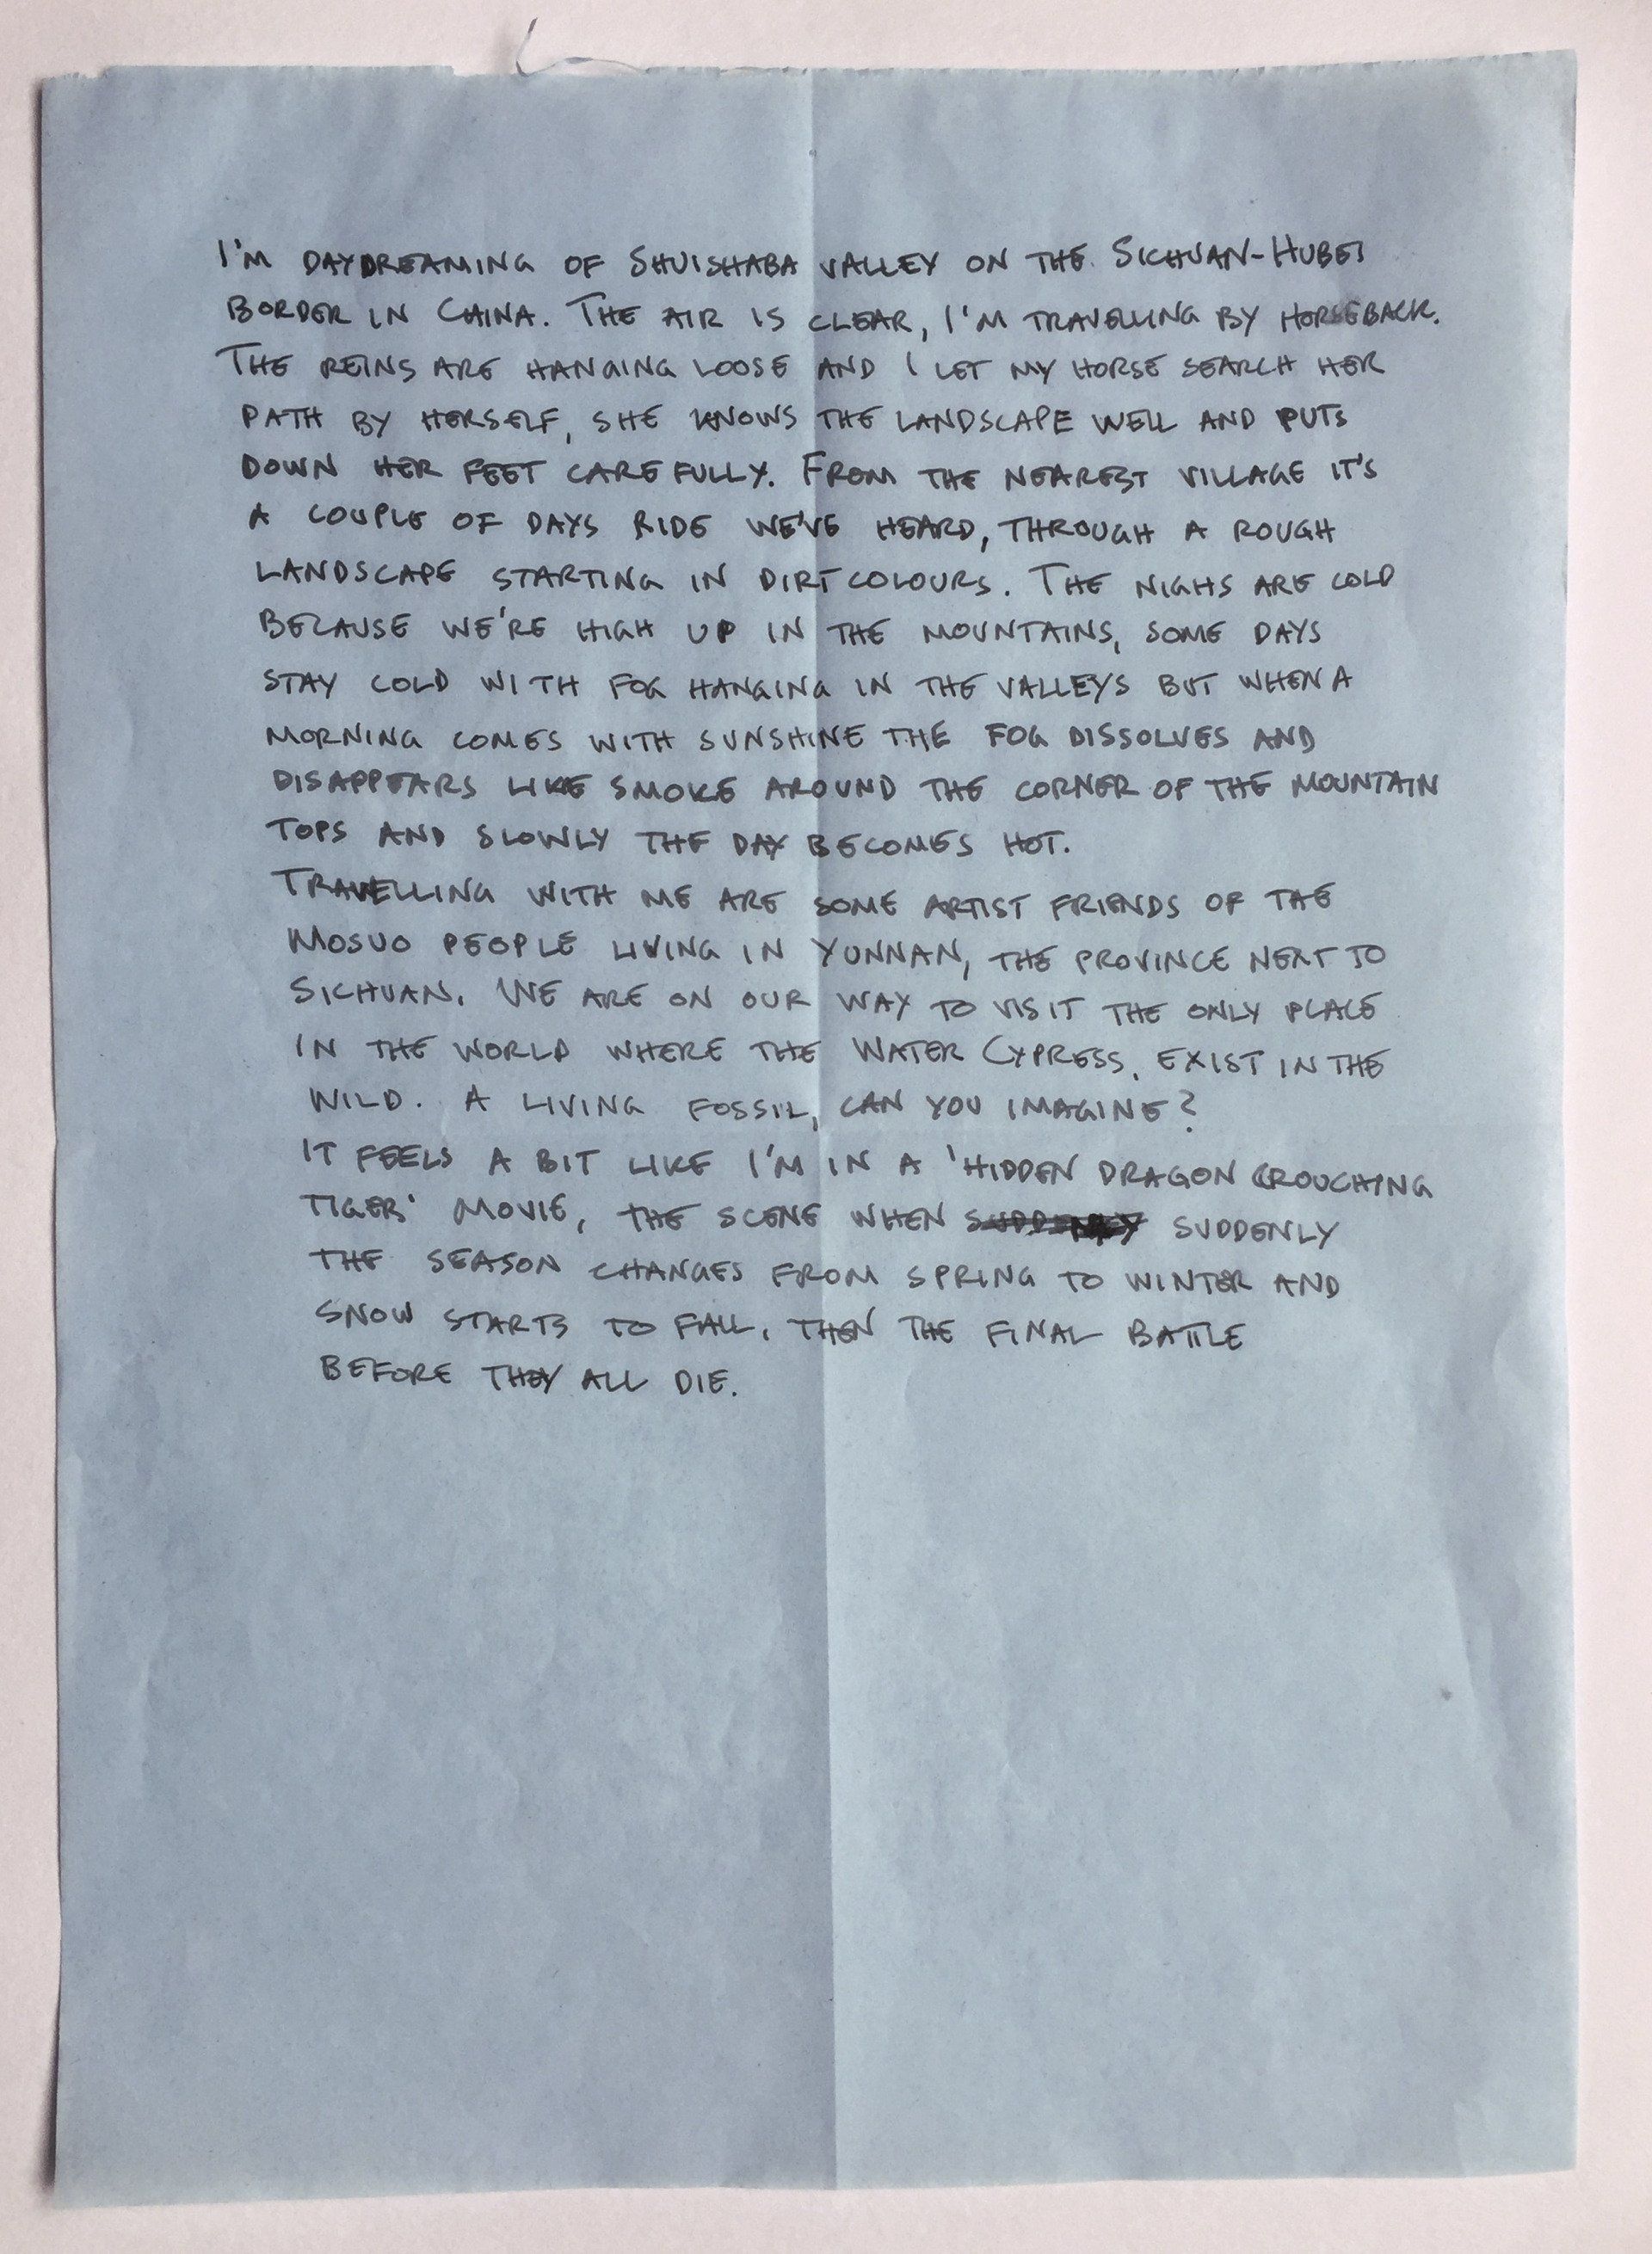 I'M DAYDREAMING OF SHUISHABA VALLEY ON THE SICHUAN-HUBEI
BORDER IN CHINA. THE AIR IS CLEAR, I'M TRAVELLING BY HORSEBACK.
THE REINS ARE HANGING LOOSE AND I LET MY HORSE SEARCH HER
PATH BY HERSELF, SHE KNOWS THE LANDSCAPE WELL AND PUTS
DOWN HER FEET CAREFULLY. FROM THE NEAREST VILLAGE IT'S
A COUPLE OF DAYS RIDE WE'VE HEARD, THROUGH A ROUGH
LANDSCAPE STARTING IN DIRT COLOURS. THE NIGHS ARE COLD
BECAUSE WE'RE HIGH UP IN THE MOUNTAINS, SOME DAYS
STAY COLD WITH FOG HANGING IN THE VALLEYS BUT WHEN A
MORNING COMES WITH SUNSHINE THE FOG DISSOLVES AND
DISAPPEARS LIKE SMOKE AROUND THE CORNER OF THE MOUNTAIN
TOPS AND SLOWLY THE DAY BECOMES HOT.
TRAVELLING WITH ME ARE SOME ARTIST FRIENDS OF THE
MOSUO PEOPLE LIVING IN YUNNAN, THE PROVINCE NEXT TO
SICHUAN. WE ARE ON OUR WAY TO VISIT THE ONLY PLACE
IN THE WORLD WHERE THE WATER CYPRESS, EXIST IN THE
WILD. A LIVING FOSSIL, CAN YOU IMAGINE?
IT FEELS A BIT LIKE I'M IN A 'HIDDEN DRAGON CROUCHING
TIGER' MOVIE, THE SCENE WHEN SUDDENLY
THE SEASON CHANGES FROM SPRING TO WINTER AND
SNOW STARTS TO FALL, THEN THE FINAL BATTLE
BEFORE THEY ALL DIE.